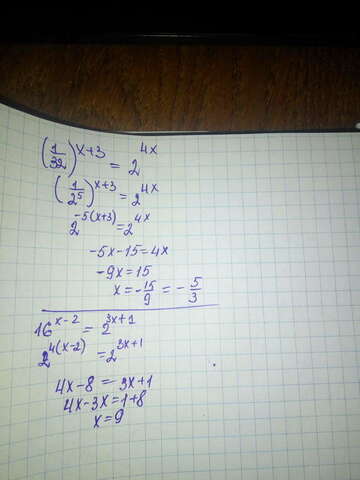 (1/32)^(x+3) = 2^(4x)
(1/2^5)^(x+3) = 2^(4x)
2^(-5(x+3)) = 2^(4x)
-5x-15=4x
-9x=15
x=-15/9=-5/3
16^(x-2) = 2^(3x+1)
2^(4(x-2)) = 2^(3x+1)
4x-8=3x+1
4x-3x=1+8
x=9